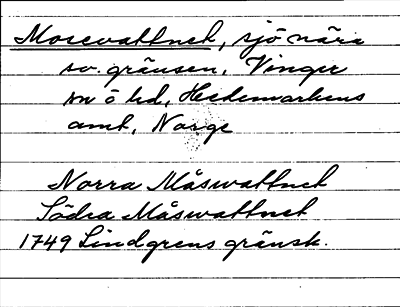 Mosevattnet, sjö nära
sv. gränsen, Vinger
sn o hd, Hedemarkens
amt, Norge
Norra Måswattnet
Södra Måswattnet
1749 Lindgrens gränsk.